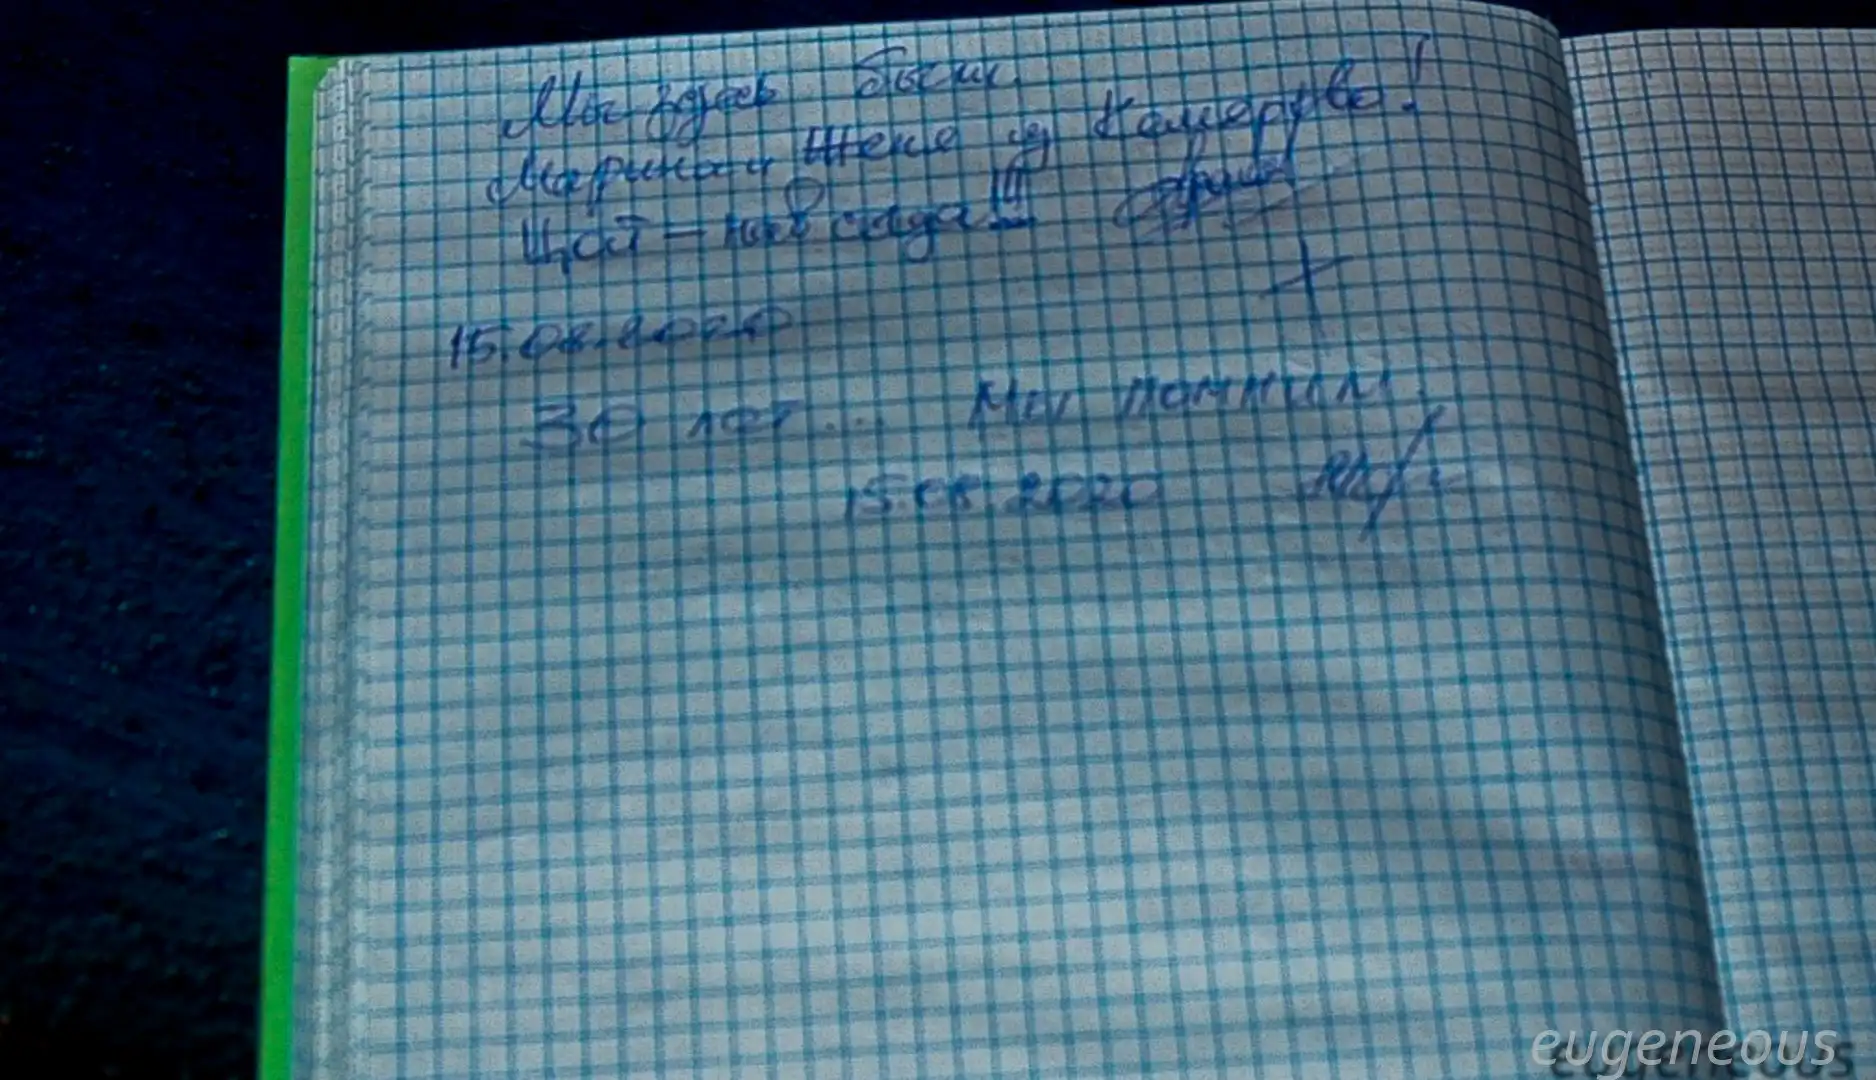 Мы здесь были
Марина и Женя из Кемерово!
Цой – навсегда!!!
15.08.2020
30 лет... Мы помним.
15.08.2020
eugeneous